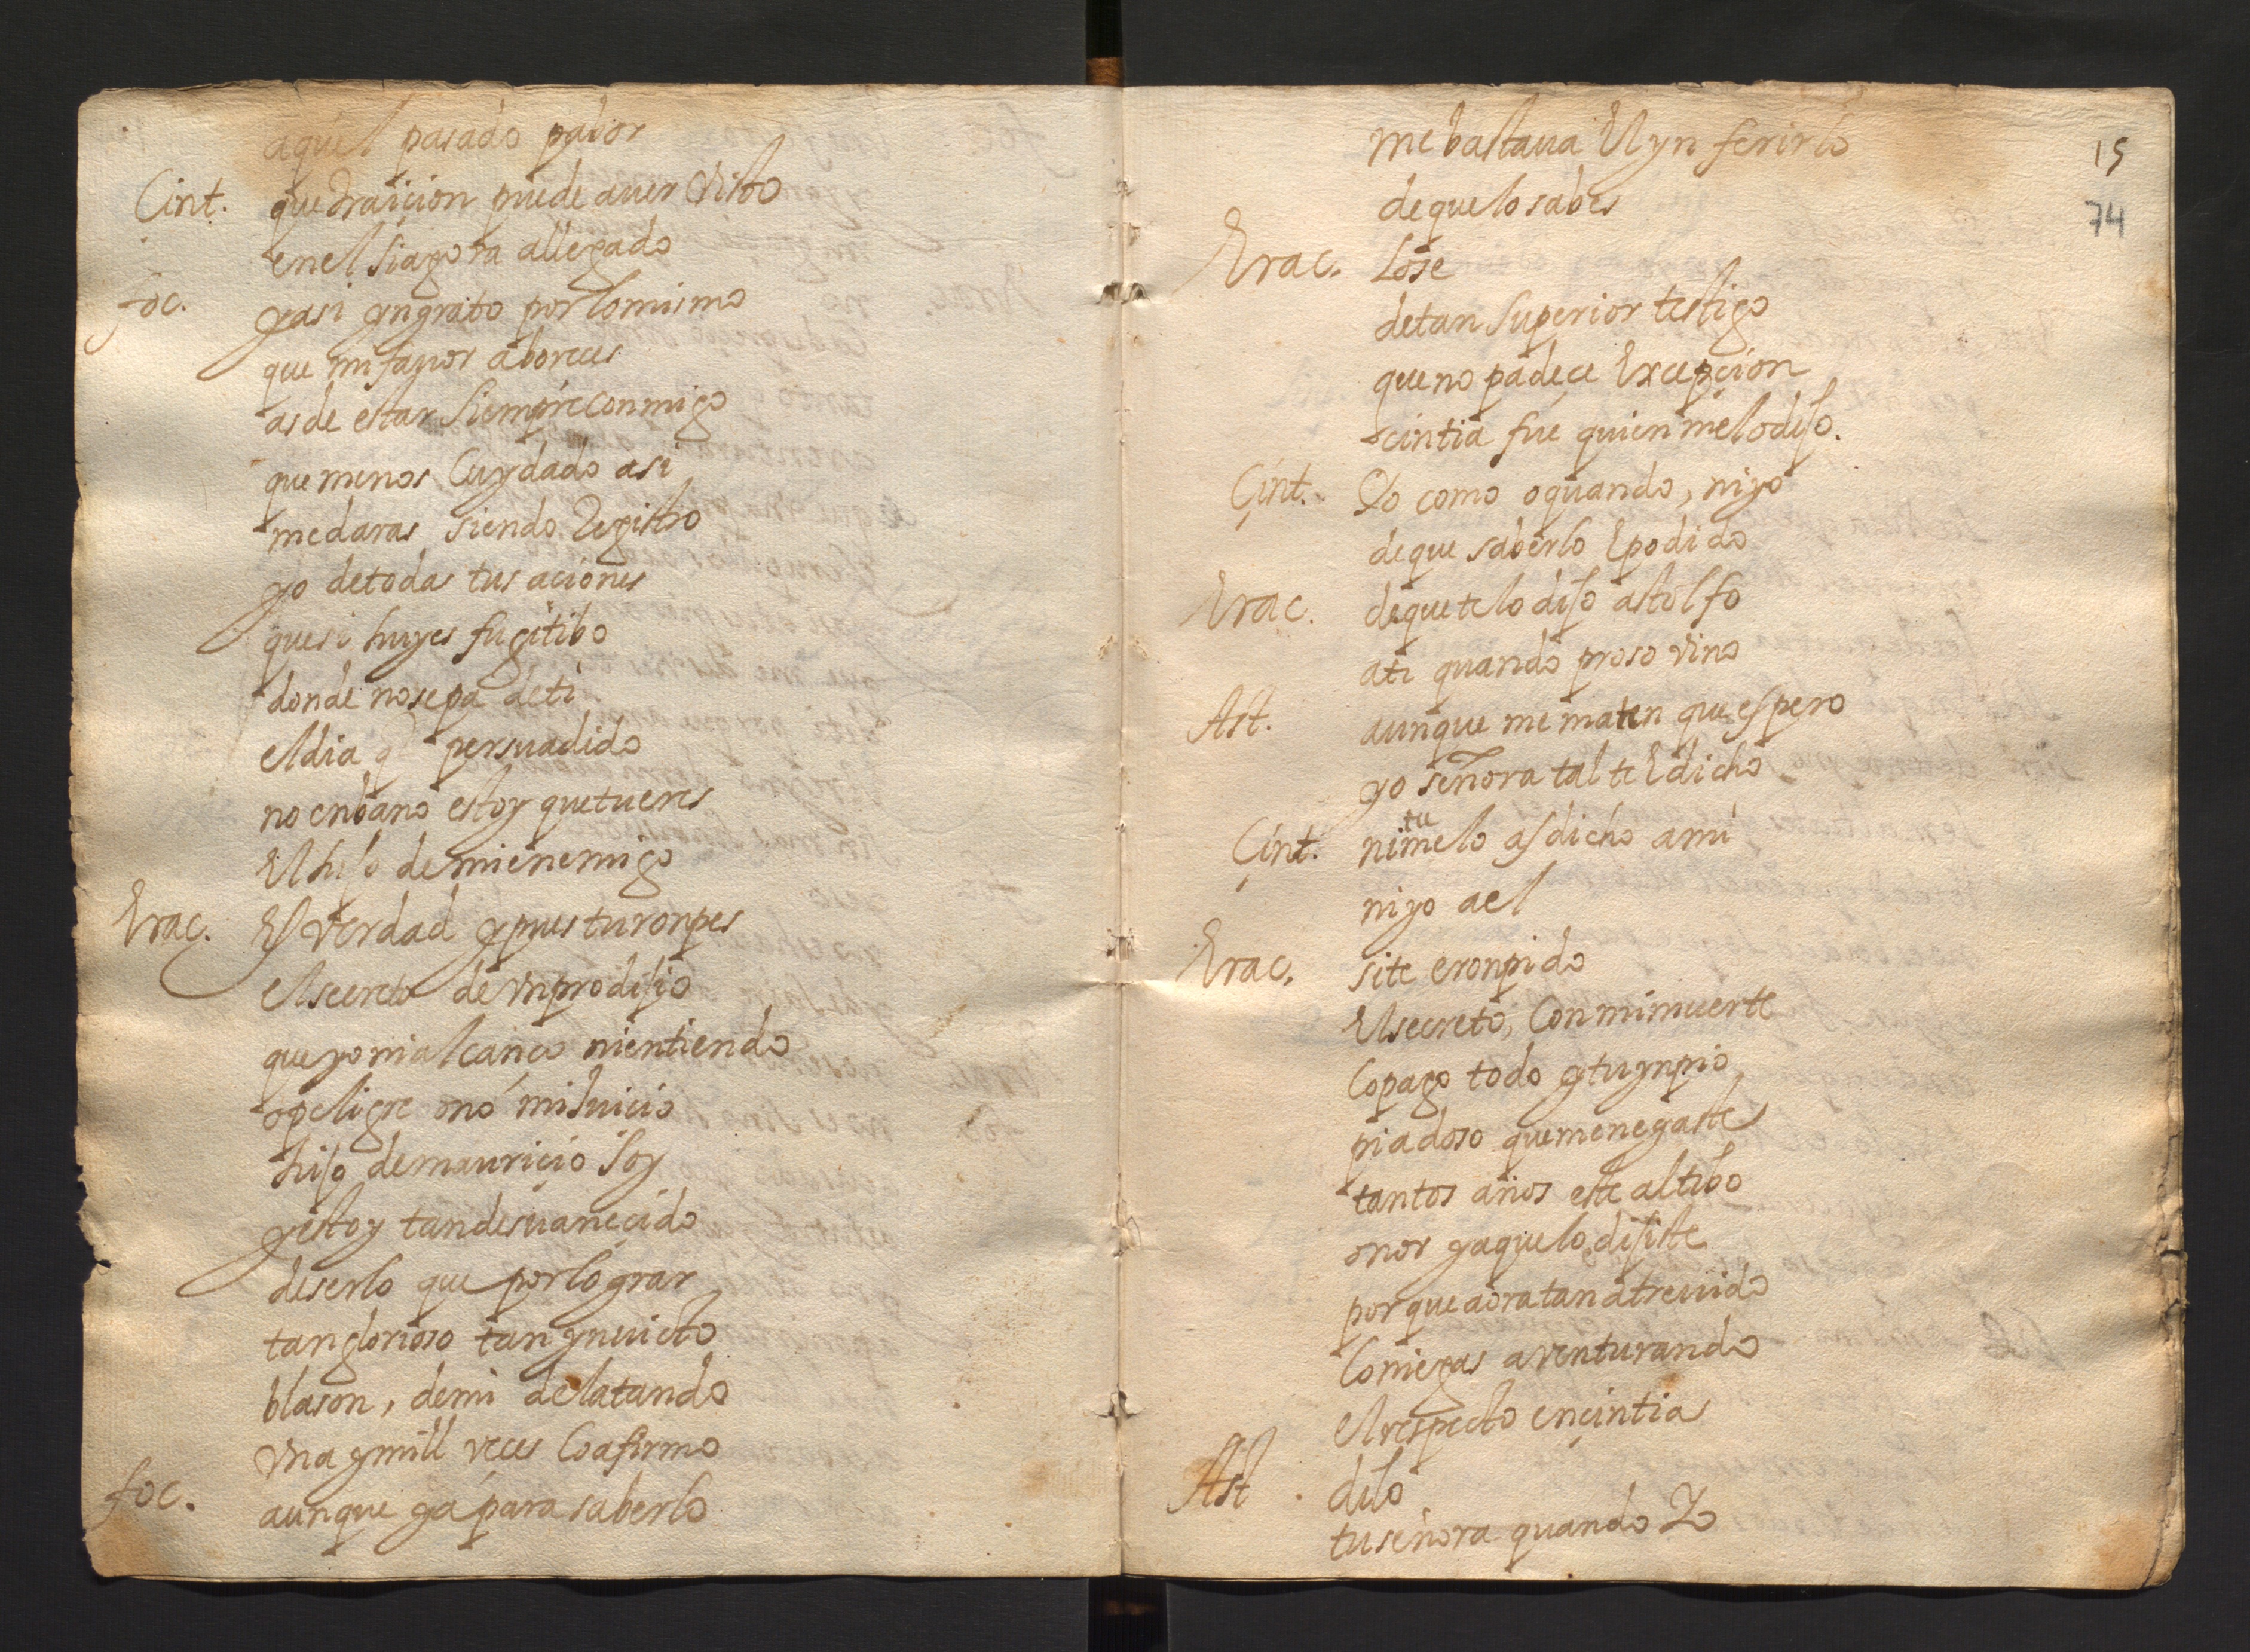 aquel pasado pabor
Cint. que traicion puede auer visto
en el si agora allegado
foc. y asi yngrato por lo mismo
que mi fauor aboreces
as de estar siempre conmigo
que menos cuydado asi
me daras siendo Registro
yo de todas tus aciones
que si huyes fugitibo
donde no sepa de ti
el dia q persuadido
no en bano estoy que tu eres
El hijo de mi enemigo
Erac. Es verdad y pues tu ronpes
el secreto de vn prodijio
que yo ni alcanço ni entiendo
o peligre o nó mi Juicio
hijo de mauricio soy
y estoy tan desuaneçido
de serlo que por lograr
tan glorioso tan ynuicto
blason, de mi delatando
vna y mill veces lo afirmo
foc. aunque ya para saberlo
15
74
me bastaua El ynferirlo
de que lo sabes
Erac. Lo se
de tan superior testigo
que no padece Excepcion
cintia fue quien me lo dijo.
Çint. Yo como o quando, ni yo
de que saberlo E podido
Erac. de que te lo dijo astolfo
a ti quando preso vino
Ast. aunque me maten que espero
yo señora tal te E dicho
Çint. ni tu me lo as dicho a mi
ni yo a el
Erac. si te e ronpido
El secreto, con mi muerte
lo pago todo y tu ynpio
piadoso que me negaste
tantos años este altibo
onor ya que lo dijiste
por que aora tan atreuido
lo niegas aventurando
el respecto en çintia
Ast. dilo
tu señora quando Yo